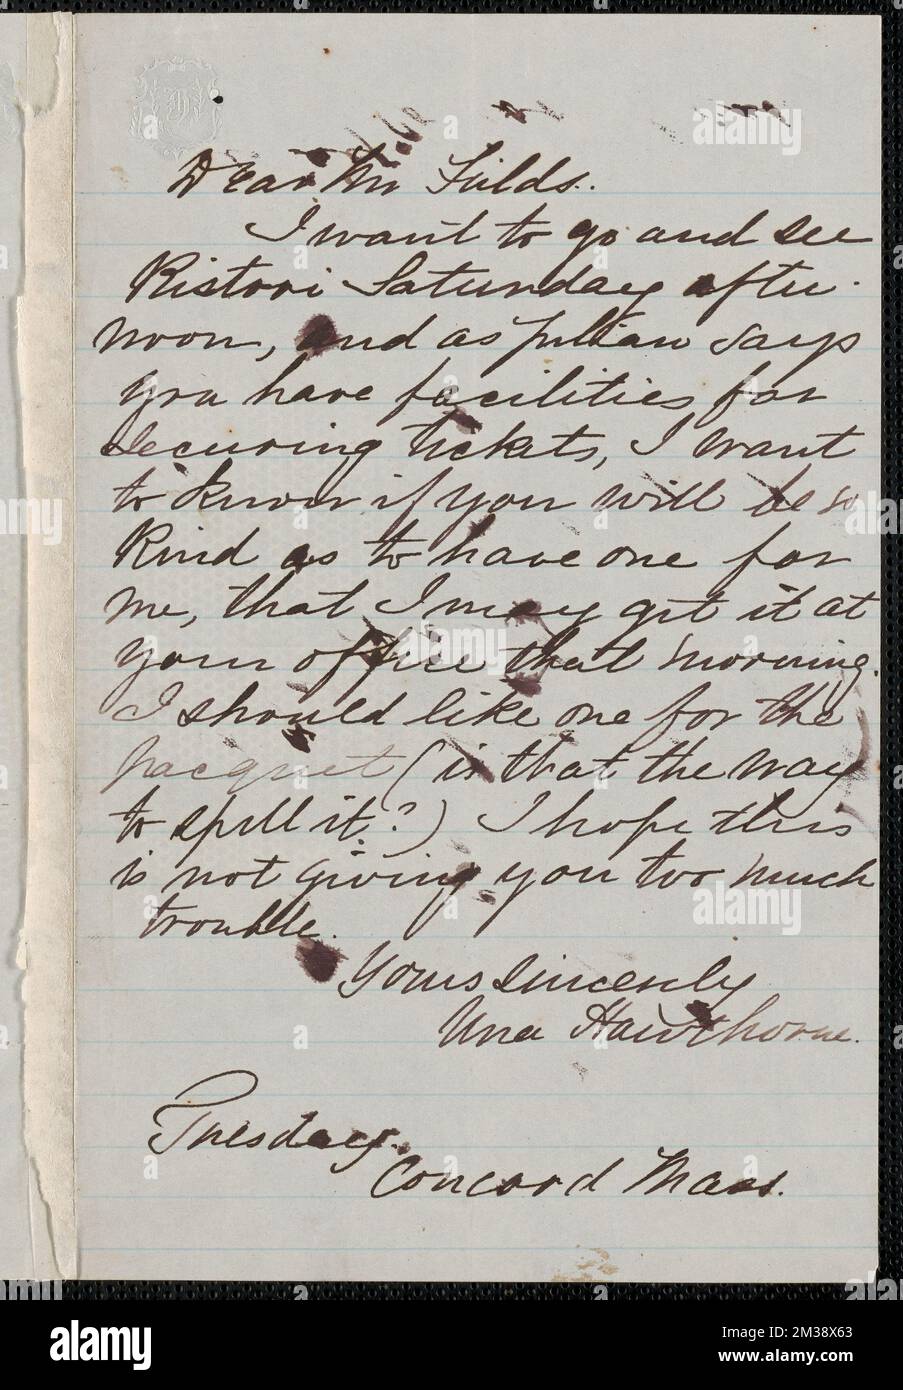 Dear Mr Fields.
I want to go and see
Ristori Saturday after-
noon, and as Julian says
you have facilities for
securing tickets, I want
to know if you will be so
kind as to have one for
me, that I may get it at
your office that morning.
I should like one for the
pacquet (is that the way
to spell it?) I hope this
is not giving you too much
trouble.
Yours sincerely
Una Hawthorne.
Tuesday.
Concord Mass.
alamy
Image ID: 2M38X63
www.alamy.com